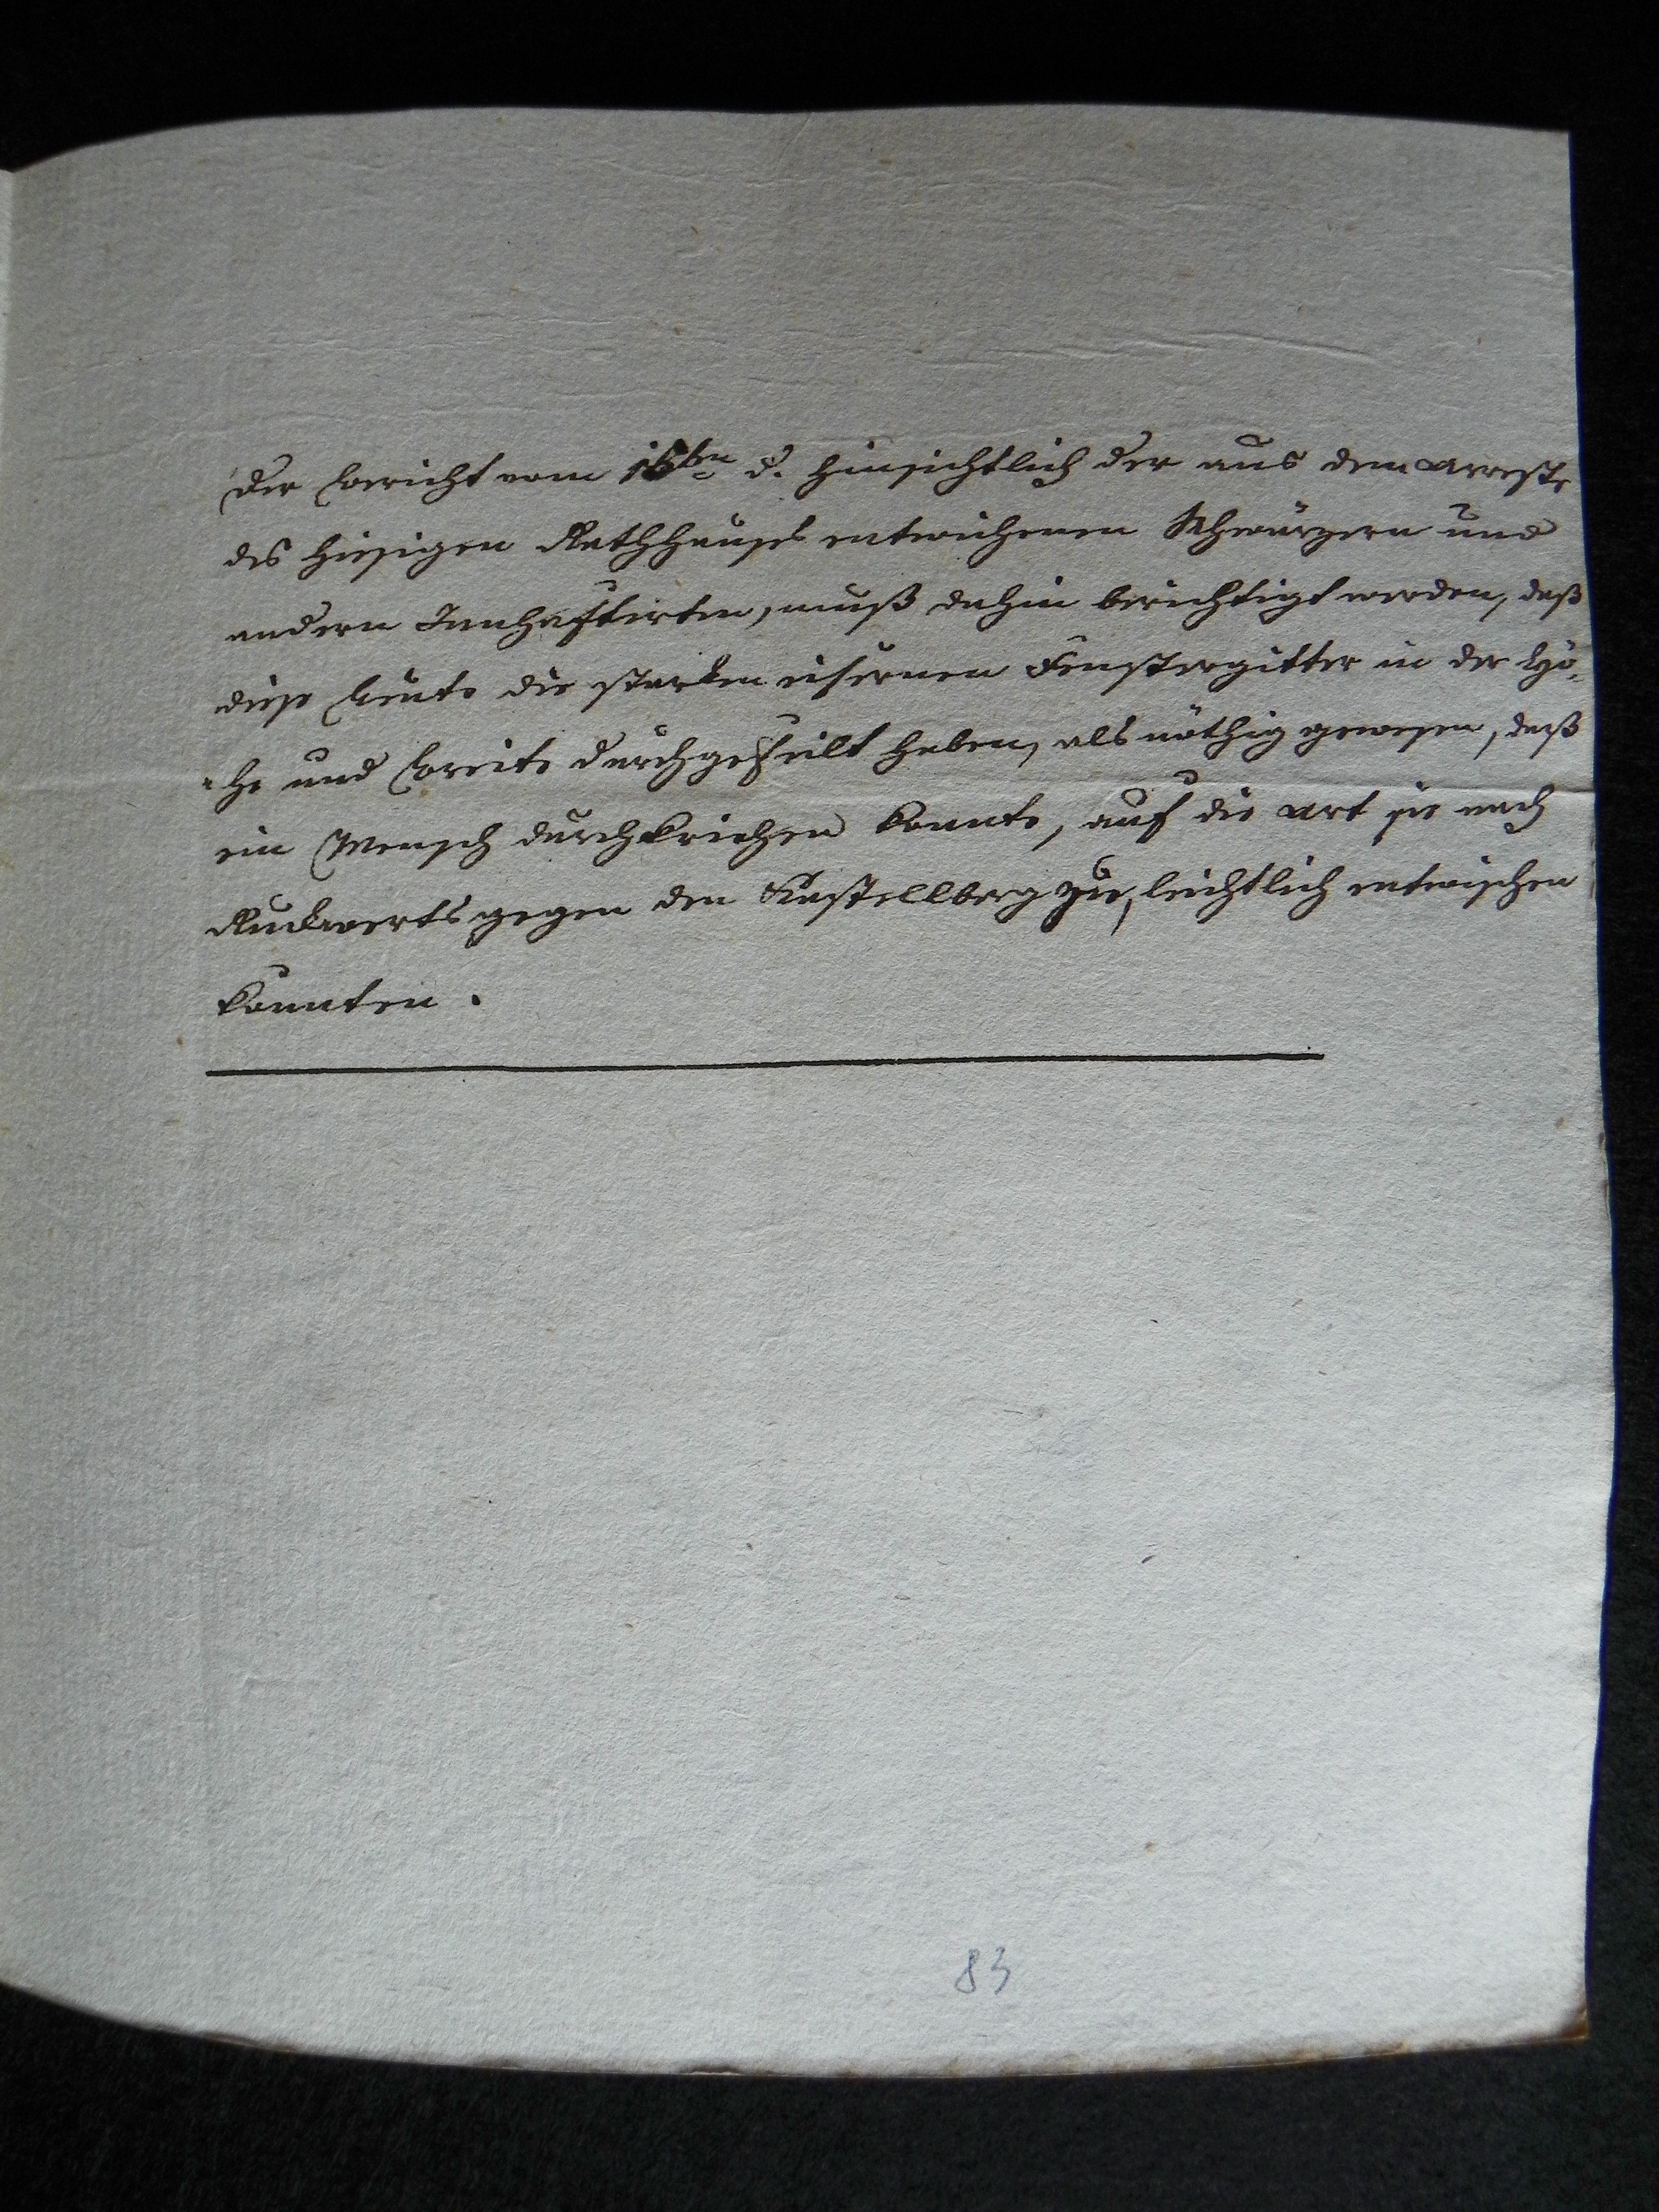 Der Bericht vom 16ten d. hinsichtlich der aus dem Arreste
des hiesigen Rathhauses entwichenen Schwärzern und
andern Innhaftirten, muß dahin berichtigt werden, daß
diese Leute die starken eisernen Fenstergitter in der Hö-
-he und Breite durchgefeilt haben, als nöthig gewesen, daß
ein Mensch durchkriechen konnte, auf die Art sie nach
Ruckwerts gegen den Kastellberg zu, leichtlich entwischen
konnten.
83